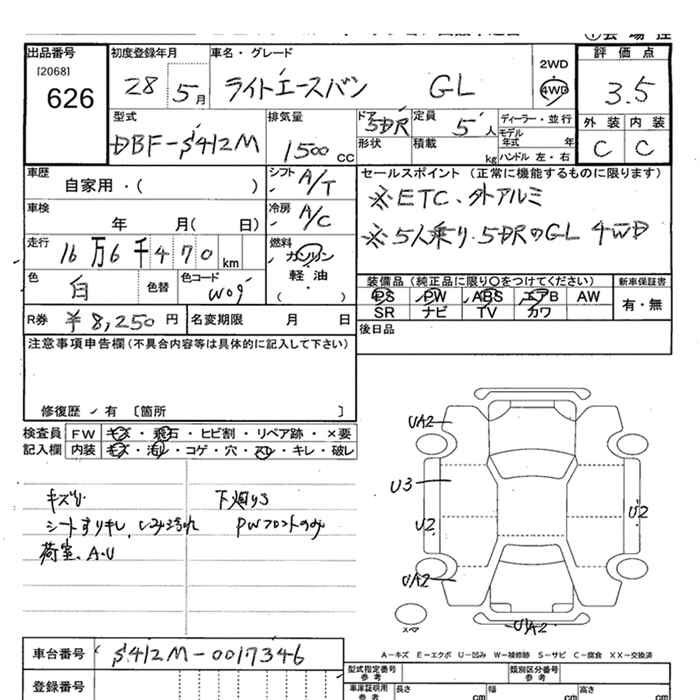 出品番号
[2068]
626
初度登録年月
28 5月
車名・グレード
ライトエースバン GL
2WD
4WD
評価点
3.5
外装 内装
C C
型式
DBF-S412M
排気量
1500 CC
ドア
5DR
形状
定員
5人
積載
kg
ディーラー・並行
モデル年式 年
ハンドル 左・右
車歴
自家用・( )
シフト
A/T
車検
年 月( 日)
冷房
A/C
走行
16万6千470km
燃料
ガソリン
軽・油
( )
色
白
色替
色コード
W09
セールスポイント (正常に機能するものに限ります)
※ETC、外アルミ
※5人乗り、5DRのGL 4WD
装備品(純正品に限り○をつけてください)
PS PW ABS エアB AW
SR ナビ TV カワ
新車保証書
有・無
R券 ¥8,250円
名変期限 月 日
後日品
注意事項申告欄(不具合内容等は具体的に記入して下さい)
修復歴 有 [箇所 ]
検査員 FW キズ・飛石・ヒビ割・リペア跡・×要
記入欄 内装 キズ・汚レ・コゲ・穴・スレ・キレ・破レ
下廻りS
PWフロントのみ
荷室、A.U
UA2
U3
U2
U2
UA2
UA2
スペア
A-キズ E-エクボ U-凹み W-補修跡 S-サビ C-腐食 XX-交換済
車台番号 S412M-0017346
登録番号
型式指定番号
参考
類別区分番号
参考
車庫証明用
参考
長さ cm 幅 cm 高さ cm